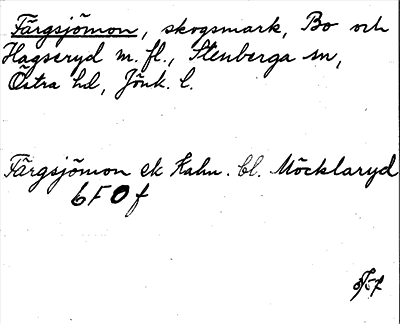 Färgsjömon, skogsmark, Bo och
Hagseryd m. fl., Stenberga sn,
Östra hd, Jönk. l.
Färgsjömon ek Kahn. bl. Möcklaryd
6F0f